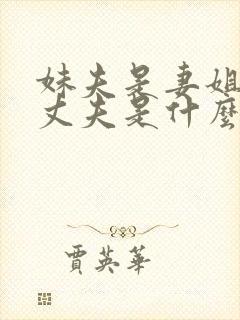 妹夫是妻姐
丈夫是什麼
賈英華